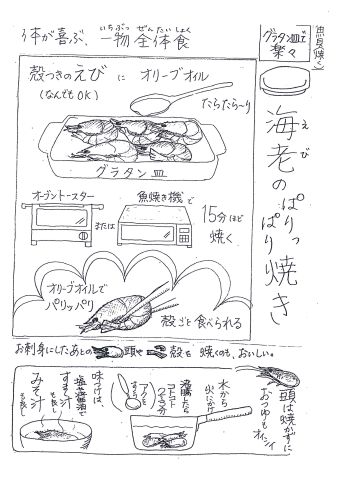 魚貝(焼く)
グラタン皿で
楽々
海老のぱりっぱり焼き
えび
体が喜ぶ、一物全体食
いちぶつ ぜんたいしょく
殻つきのえび に オリーブオイル
(なんでもOK)
たらたら〜り
グラタン皿
オーブントースター
または
魚焼き機で
15分ほど
焼く
オリーブオイルで
パリッパリ
殻ごと食べられる
お刺身にしたあとの頭や殻を焼くのも、おいしい。
頭は焼かずに
おつゆもオイシイ
水から
火にかけ
沸騰したら
コトコト
(アクをすくう)
味つけは、
塩や醤油で
すまし汁
も良し
みそ汁
も良し